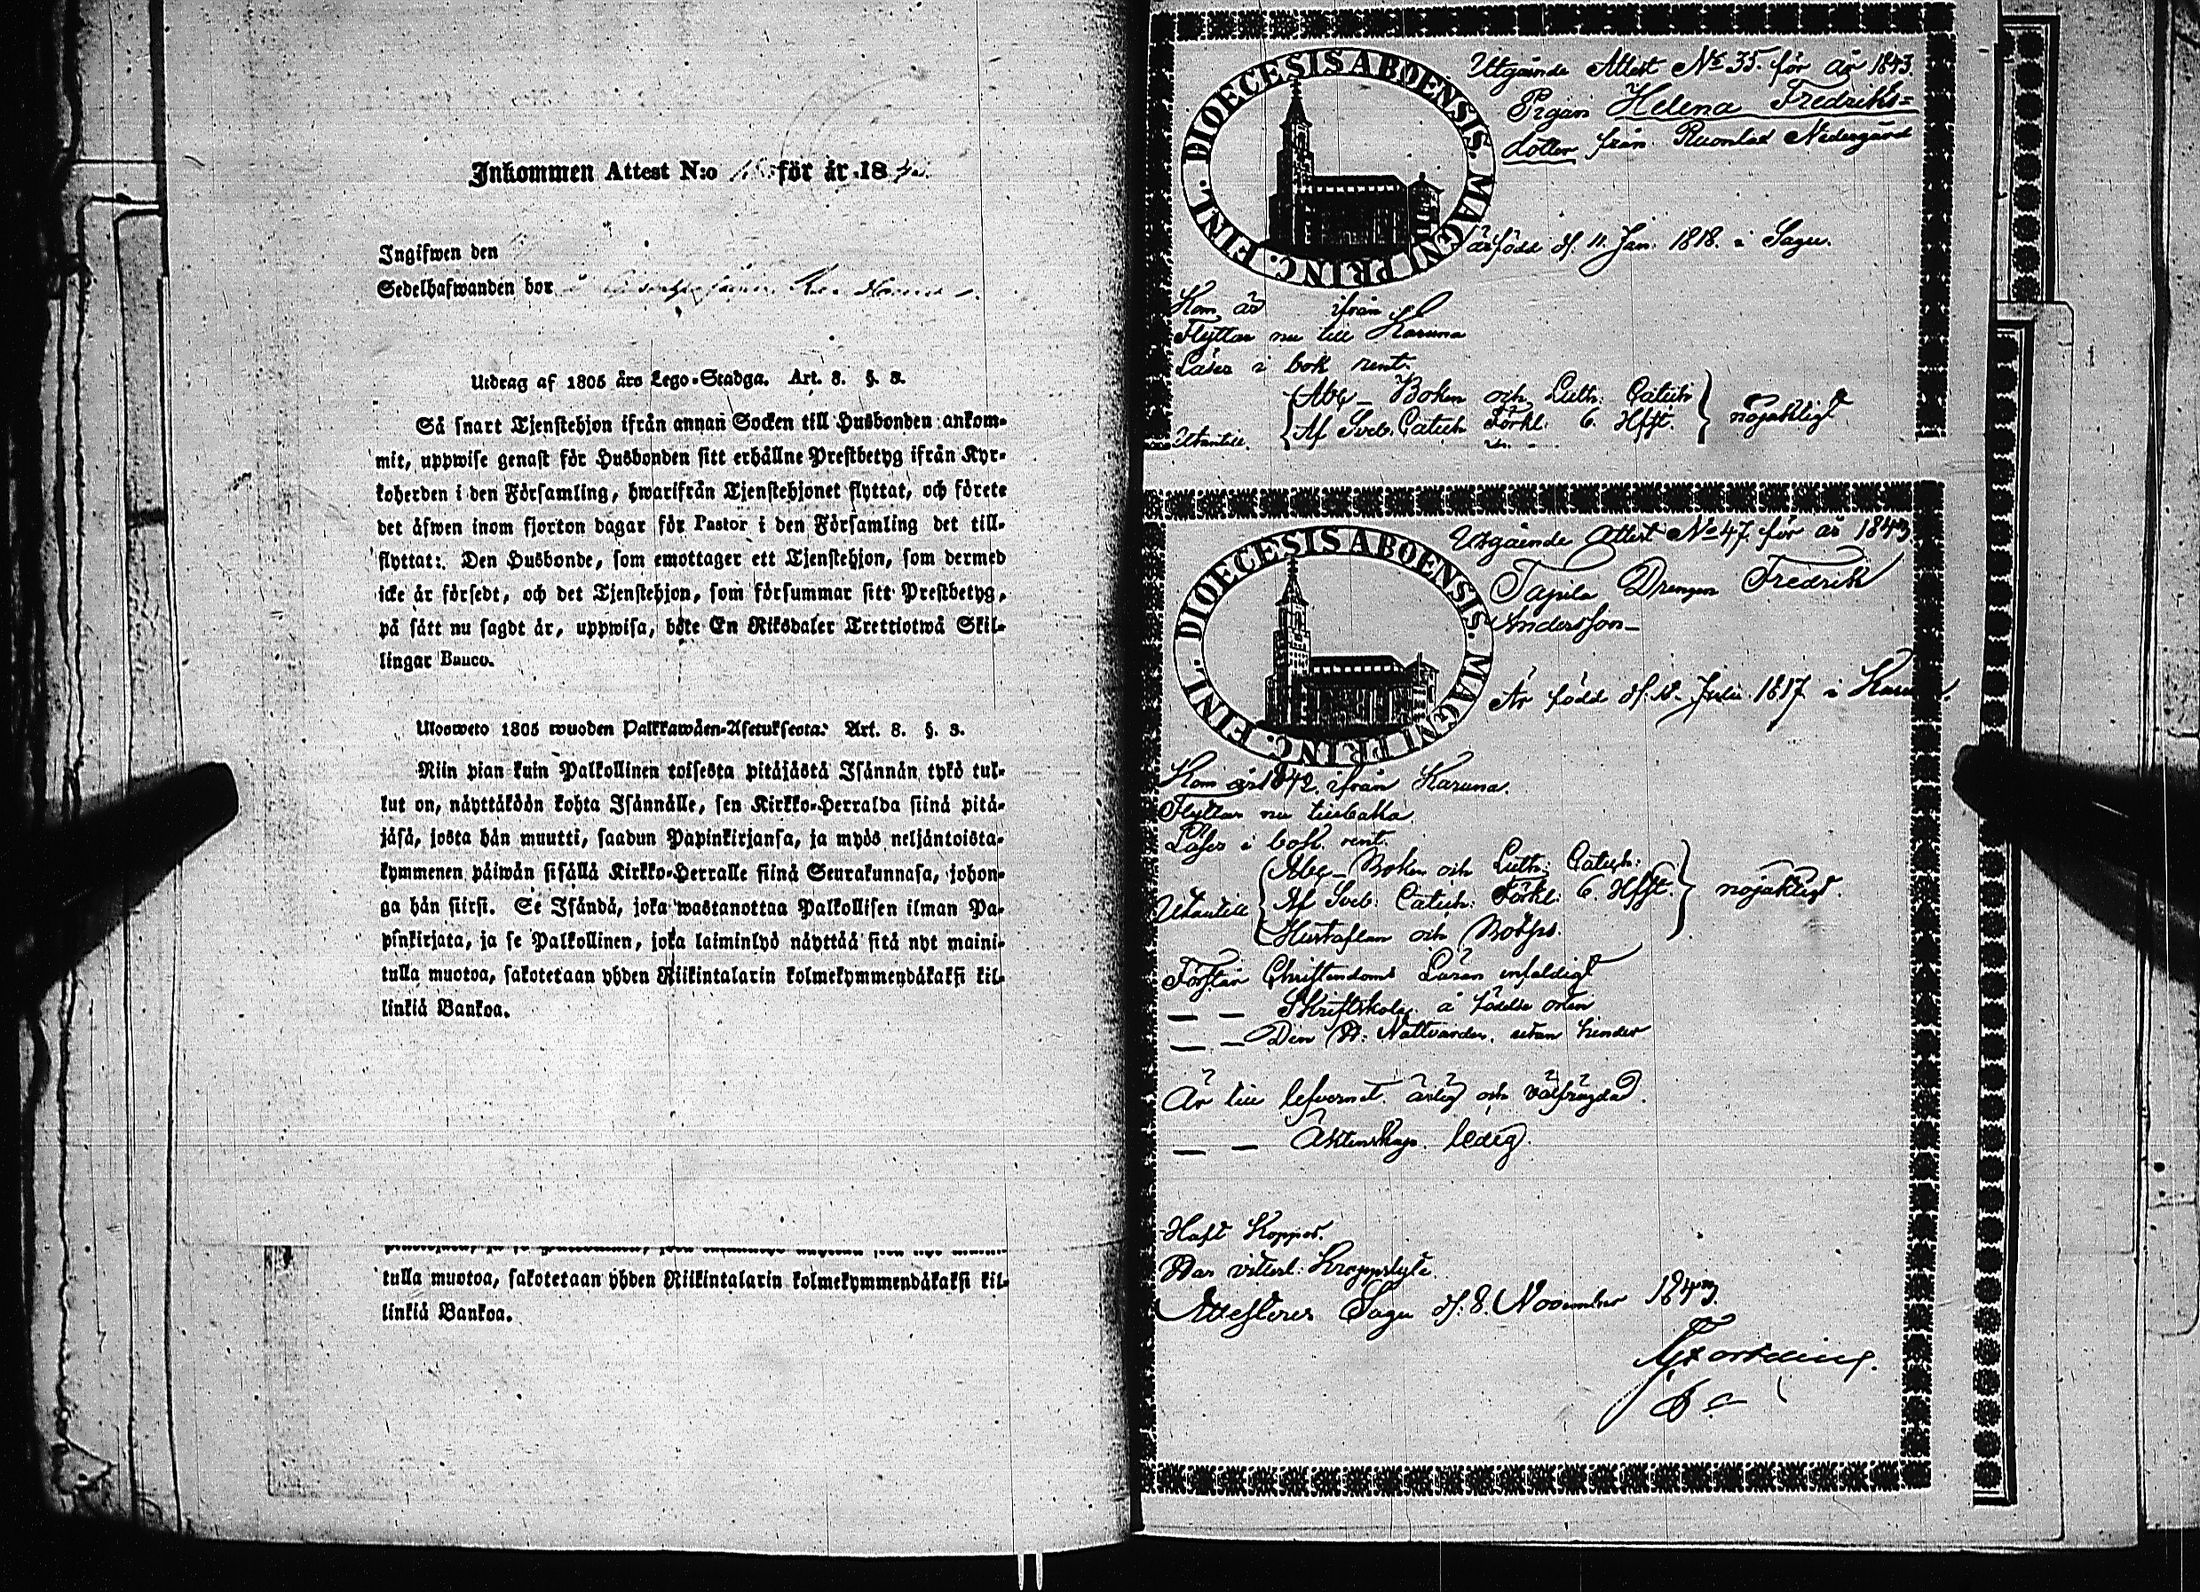 Inkommen Attest N:o för år 18
Ingifwen den
Sedelhafwanden bor
Utdrag af 1805 års Lego-Stadga. Art. 8. §. 3.
Så snart Tjenstehjon ifrån annan Socken till Husbonden ankom-
mit, uppwise genast för Husbonden sitt erhållne Prestbetyg ifrån Kyr-
koherden i den Församling, hwarifrån Tjenstehjonet flyttat, och förete
det äfwen inom fjorton dagar för Pastor i den Församling det till-
flyttat: Den Husbonde, som emottager ett Tjenstehjon, som dermed
icke är försedt, och det Tjenstehjon, som försummar sitt Prestbetyg,
på sätt nu sagdt är, uppwisa, böte En Riksdaler Trettiotwå Skil-
lingar Banco.
Ulosweto 1805 wuoden Palkkawäen-Asetuksesta: Art. 8. §. 3.
Niin pian kuin Palkollinen toisesta pitäjästä Isännän tykö tul-
lut on, näyttäköön kohta Isännälle, sen Kirkko-Herralda siinä pitä-
jäsä, josta hän muutti, saadun Papinkirjansa, ja myös neljäntoista-
kymmenen päiwän sisällä Kirkko-Herralle siinä Seurakunnasa, johon-
ga hän siirsi. Se Isändä, joka wastanottaa Palkollisen ilman Pa-
pinkirjata, ja se Palkollinen, joka laiminlyö näyttää sitä nyt maini-
tulla muotoa, sakotetaan yhden Riikintalarin kolmekymmendäkaksi kil-
linkiä Bankoa.
tulla muotoa, sakotetaan yhden Riikintalarin kolmekymmendäkaksi kil-
linkiä Bankoa.
DIOECESIS ABOENSIS. MAGNI PRINC. FINL.
Utgående Attest No 35. för år 1843.
Pigan Helena Fredriks=
dotter från Ruonlax Nedergård
är född d. 11. Jan. 1818. i Sagu.
Kom år ifrån
Flyttar nu till Karuna
Läser i bok rent.
Abc-Boken och Luth. Catech
Utantill Af Sveb. Catech Förkl. 6. Hfst. nöjaktligt
DIOECESIS ABOENSIS. MAGNI PRINC. FINL.
Utgående Attest No 47. för år 1843
Tapila Drengen Fredrik
Andersson
Är född d. 18. Julii 1817 i Karuna
Kom år 1842. ifrån Karuna.
Flyttar nu tillbaka
Läser i bok rent.
Abc-Boken och Luth: Catech:
Utantill Af Sveb: Catech: Förkl: 6 Hfst. nöjaktligt.
Hustaflan och Botps.
Förstår Christendoms Läran enfaldigt
— — Skriftskolor å födelse orten
— — Den H: Nattvarden. utan hinder
Är till lefvernet. ärlig och välfrägdad.
— — Äktenskap. ledig.
Haft Koppor.
Har vitterl: Kroppslyte
Attesteras Sagu d. 8. November 1843.